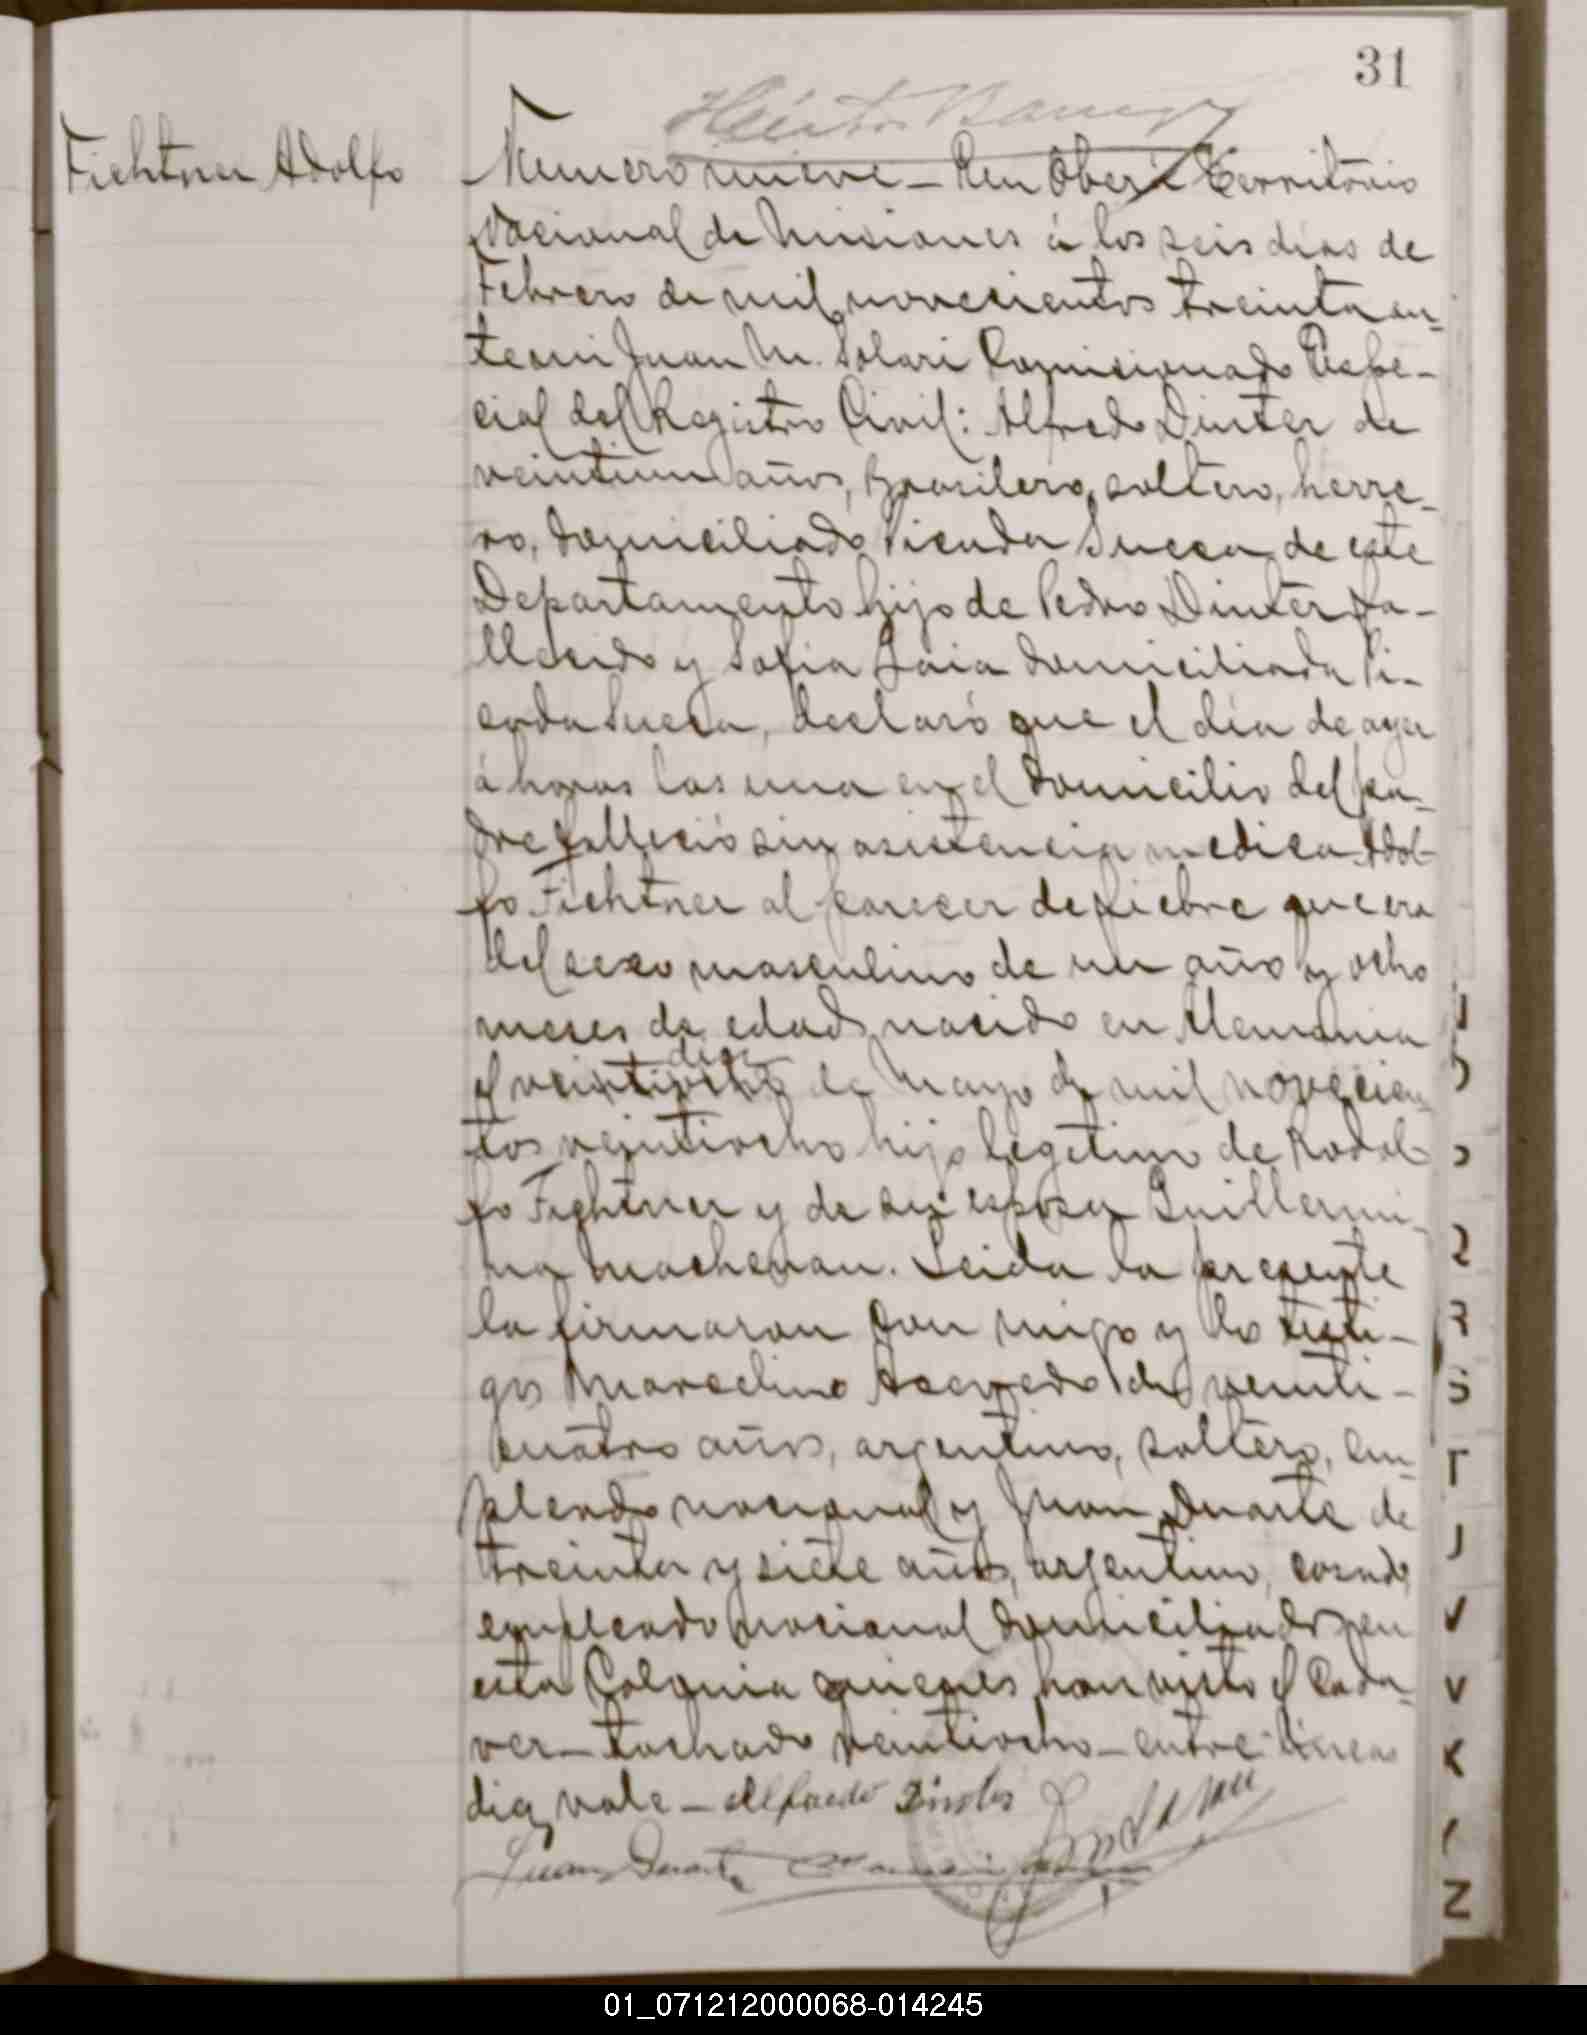 31
Fichtner Adolfo
Numero nueve - En Oberá Territorio
Nacional de Misiones á los seis dias de
Febrero de mil novecientos treinta an-
te mi Juan M. Solari Comisionado Espe-
cial del Registro Civil: Alfredo Dinter de
veintiun años, Brasilero, soltero, herre-
ro, domiciliado Picada Sueca de este
Departamento hijo de Pedro Dinter fa-
llecido y Sofia domiciliada Pi-
cada Sueca, declaró que el día de ayer
á horas las una en el domicilio del pa-
dre falleció sin asistencia medica Adol-
fo Fichtner al parecer de fiebre que era
del sexo masculino de un año y ocho
meses de edad, nacido en Alemania
diez
el veintiocho de Mayo de mil novecien-
tos veintiocho hijo legitimo de Rodol-
fo Fightner y de su esposa Guillermi-
na Machenau. Leida la presente
la firmaron con migo y los testi-
gos Marcelino Acevedo de veinti-
cuatro años, argentino, soltero, em-
pleado nacional y Juan Duarte de
treinta y siete años, argentino, casado,
empleado nacional domiciliados en
esta Colonia quienes han visto el cada-
ver - tachado veintiocho - entre lineas
diez vale - Alfredo Dinter
Juan Duarte
J
D
2
R
S
T
J
V
V
K
Z
01_071212000068-014245